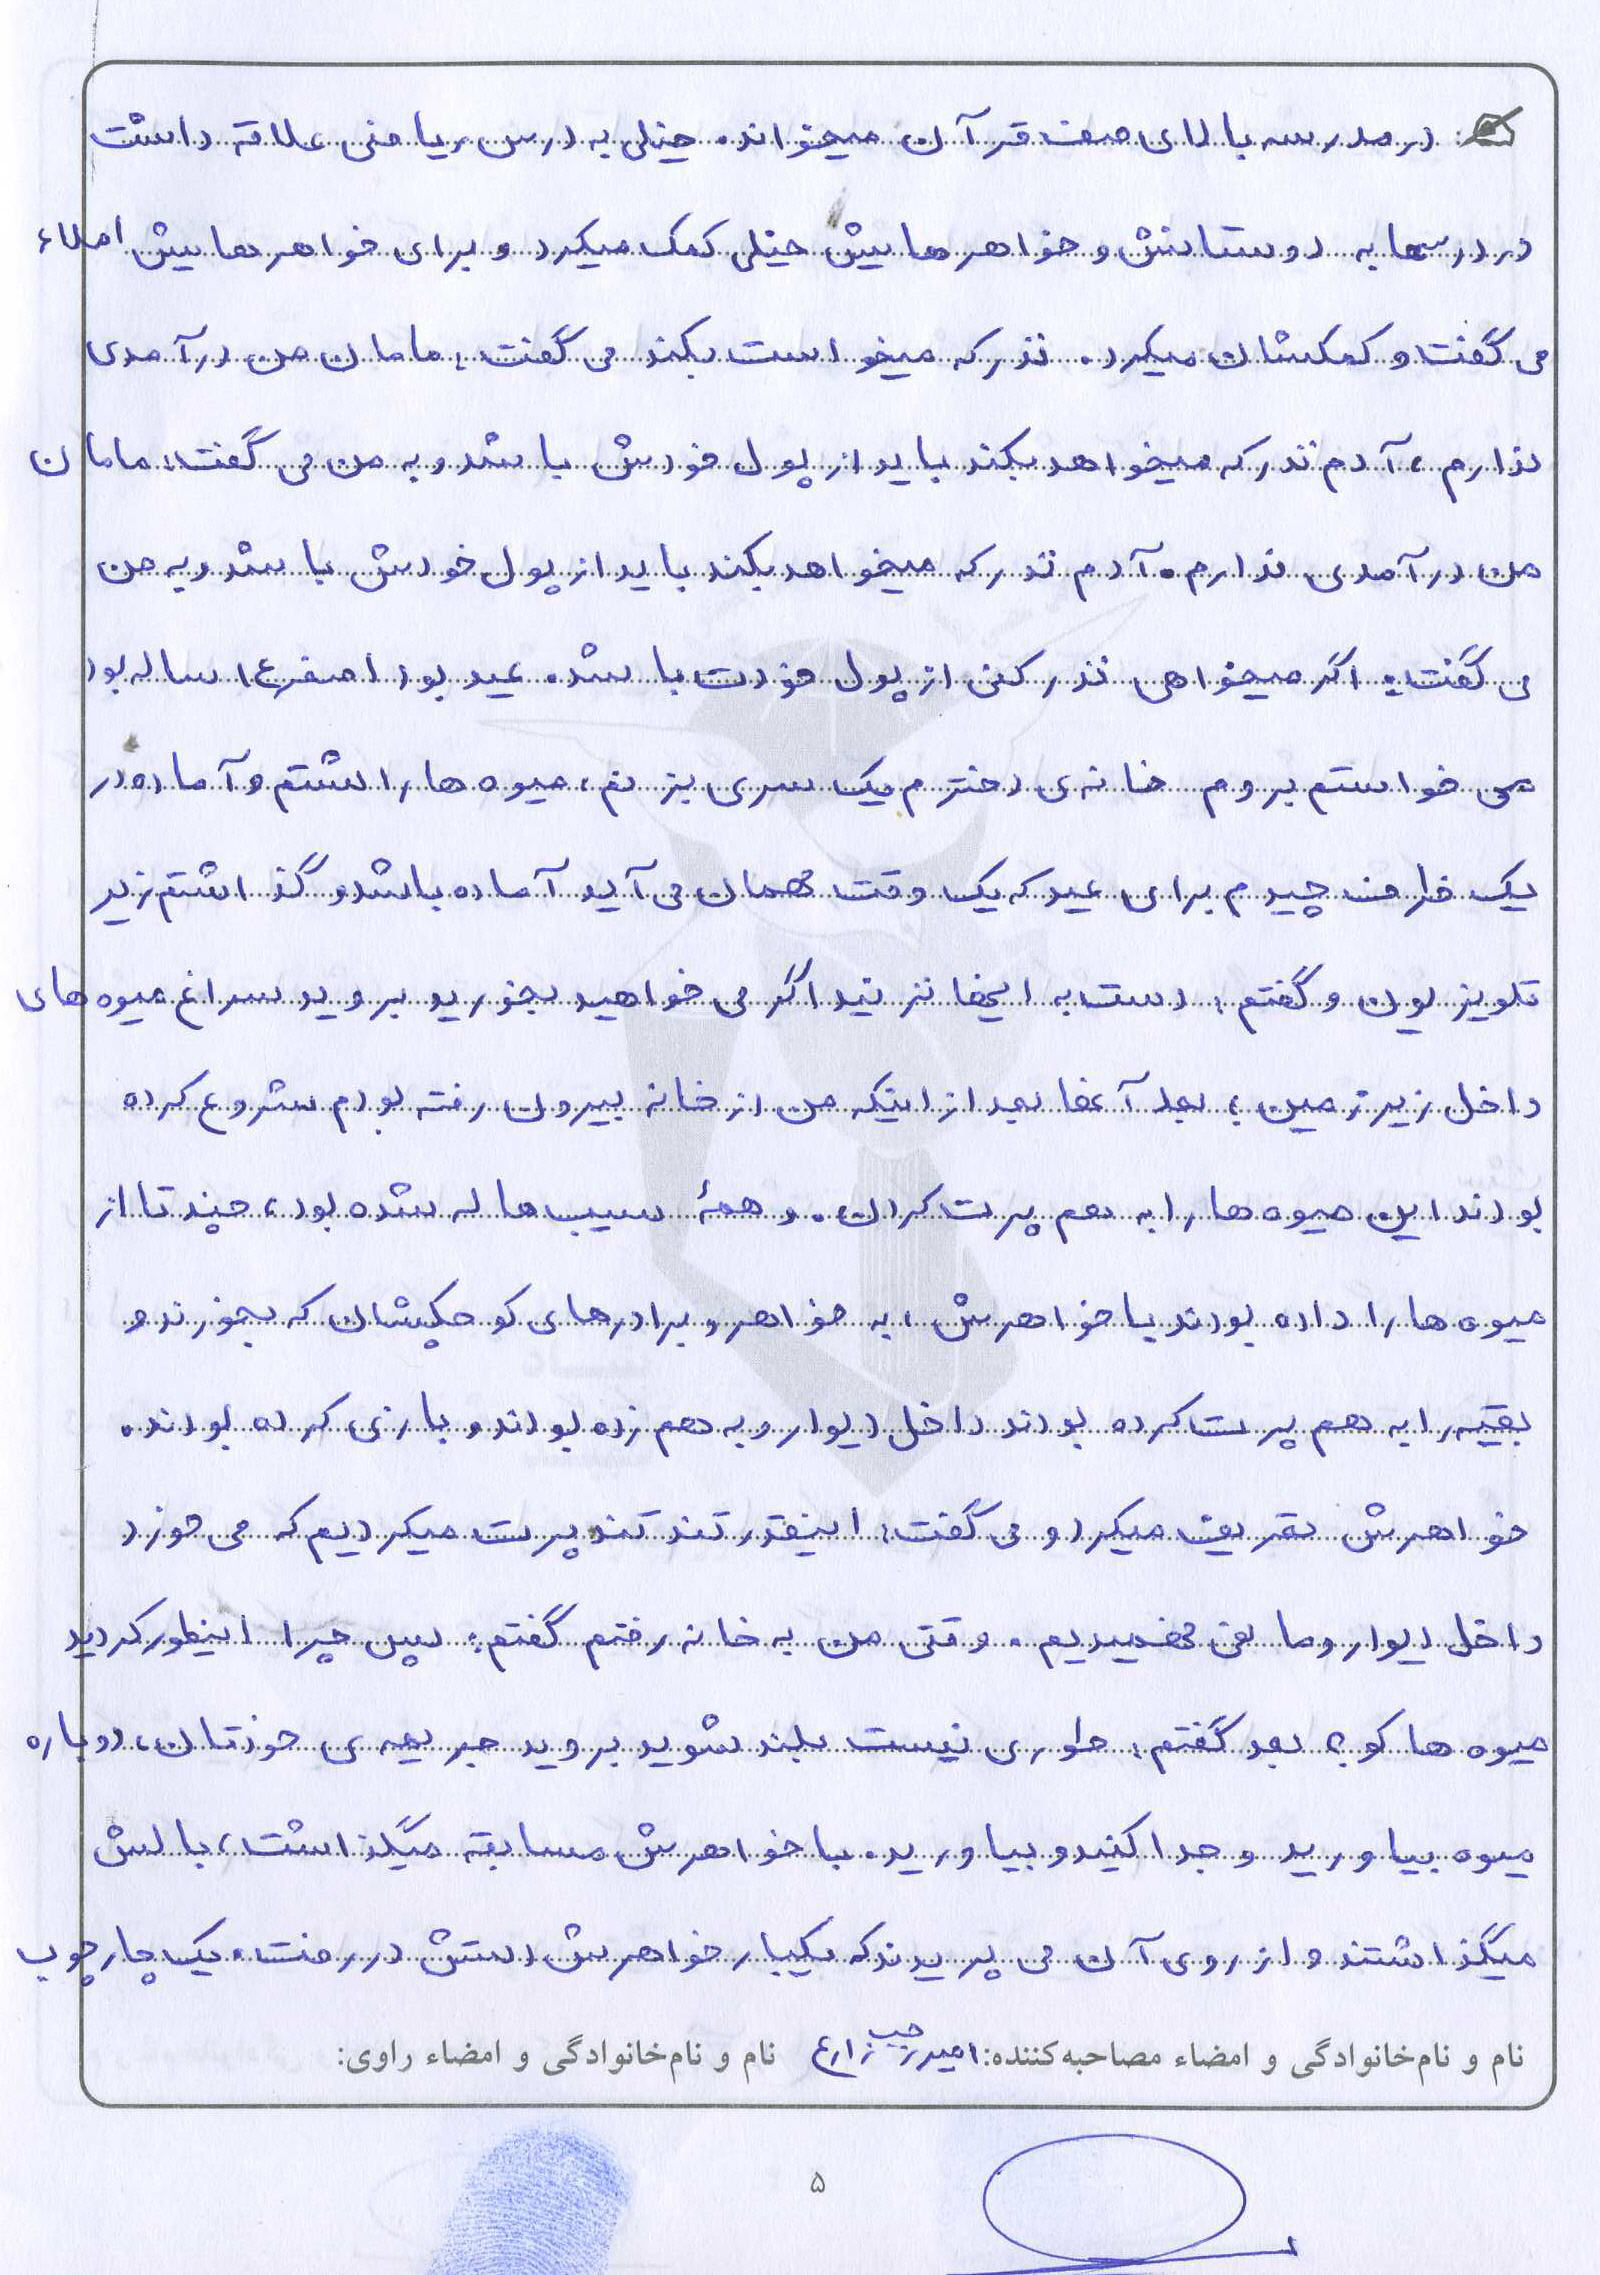 در مدرسه بالای صف قرآن میخواند. خیلی به درس ریاضی علاقه داشت
در درسها به دوستانش و خواهرهایش خیلی کمک میکرد و برای خواهرهایش املاء
می گفت و کمکشان میکرد. نذر که میخواست بکند می گفت: مامان من درآمدی
ندارم، آدم نذر که میخواهد بکند باید از پول خودش باشد و به من می گفت: مامان
من درآمدی ندارم. آدم نذر که میخواهد بکند باید از پول خودش باشد و به من
می گفت: اگر میخواهی نذر کنی از پول خودت باشد. عید بود اصغر ۱۴ ساله بود
می خواستم بروم خانه‌ی دخترم یک سری بزنم، میوه ها را شستم و آماده در
یک ظرف چیدم برای عید که یک وقت مهمان می آید آماده باشد و گذاشتم زیر
تلویزیون و گفتم: دست به اینها نزنید اگر می خواهید بخورید بروید سراغ میوه های
داخل زیرزمین؛ بعد آنها بعد از اینکه من از خانه بیرون رفته بودم شروع کرده
بودند این میوه ها را به هم پرت کردن. و همهٔ سیب ها له شده بود، چند تا از
میوه ها را داده بودند با خواهرش، به خواهر و برادرهای کوچکشان که بخورند و
بقیه را به هم پرت کرده بودند داخل دیوار و به هم زده بودند و بازی کرده بودند.
خواهرش تعریف میکرد و می گفت: اینقدر تند تند پرت میکردیم که می خورد
داخل دیوار و ما نمی فهمیدیم. وقتی من به خانه رفتم گفتم: پس چرا اینطور کردید
میوه ها کو؟ بعد گفتم: طوری نیست بلند شوید بروید جریمه ی خودتان، دوباره
میوه بیاورید و جدا کنید و بیاورید. با خواهرش مسابقه میگذاشت، بالش
میگذاشتند و از روی آن می پریدند که یکبار خواهرش دستش در رفت. یک چارچوب
نام و نام‌خانوادگی و امضاء مصاحبه‌کننده: امیر رجب زارع نام و نام‌خانوادگی و امضاء راوی:
۵